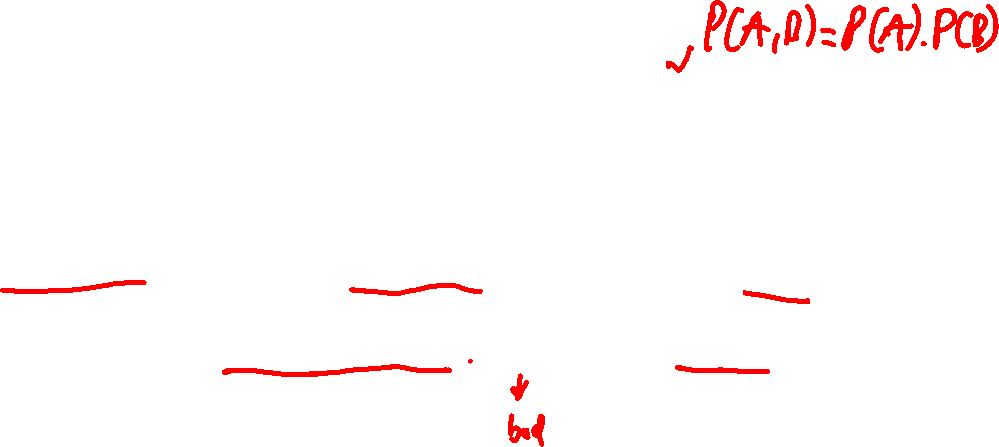 P(A,B)=P(A).P(B)
bad